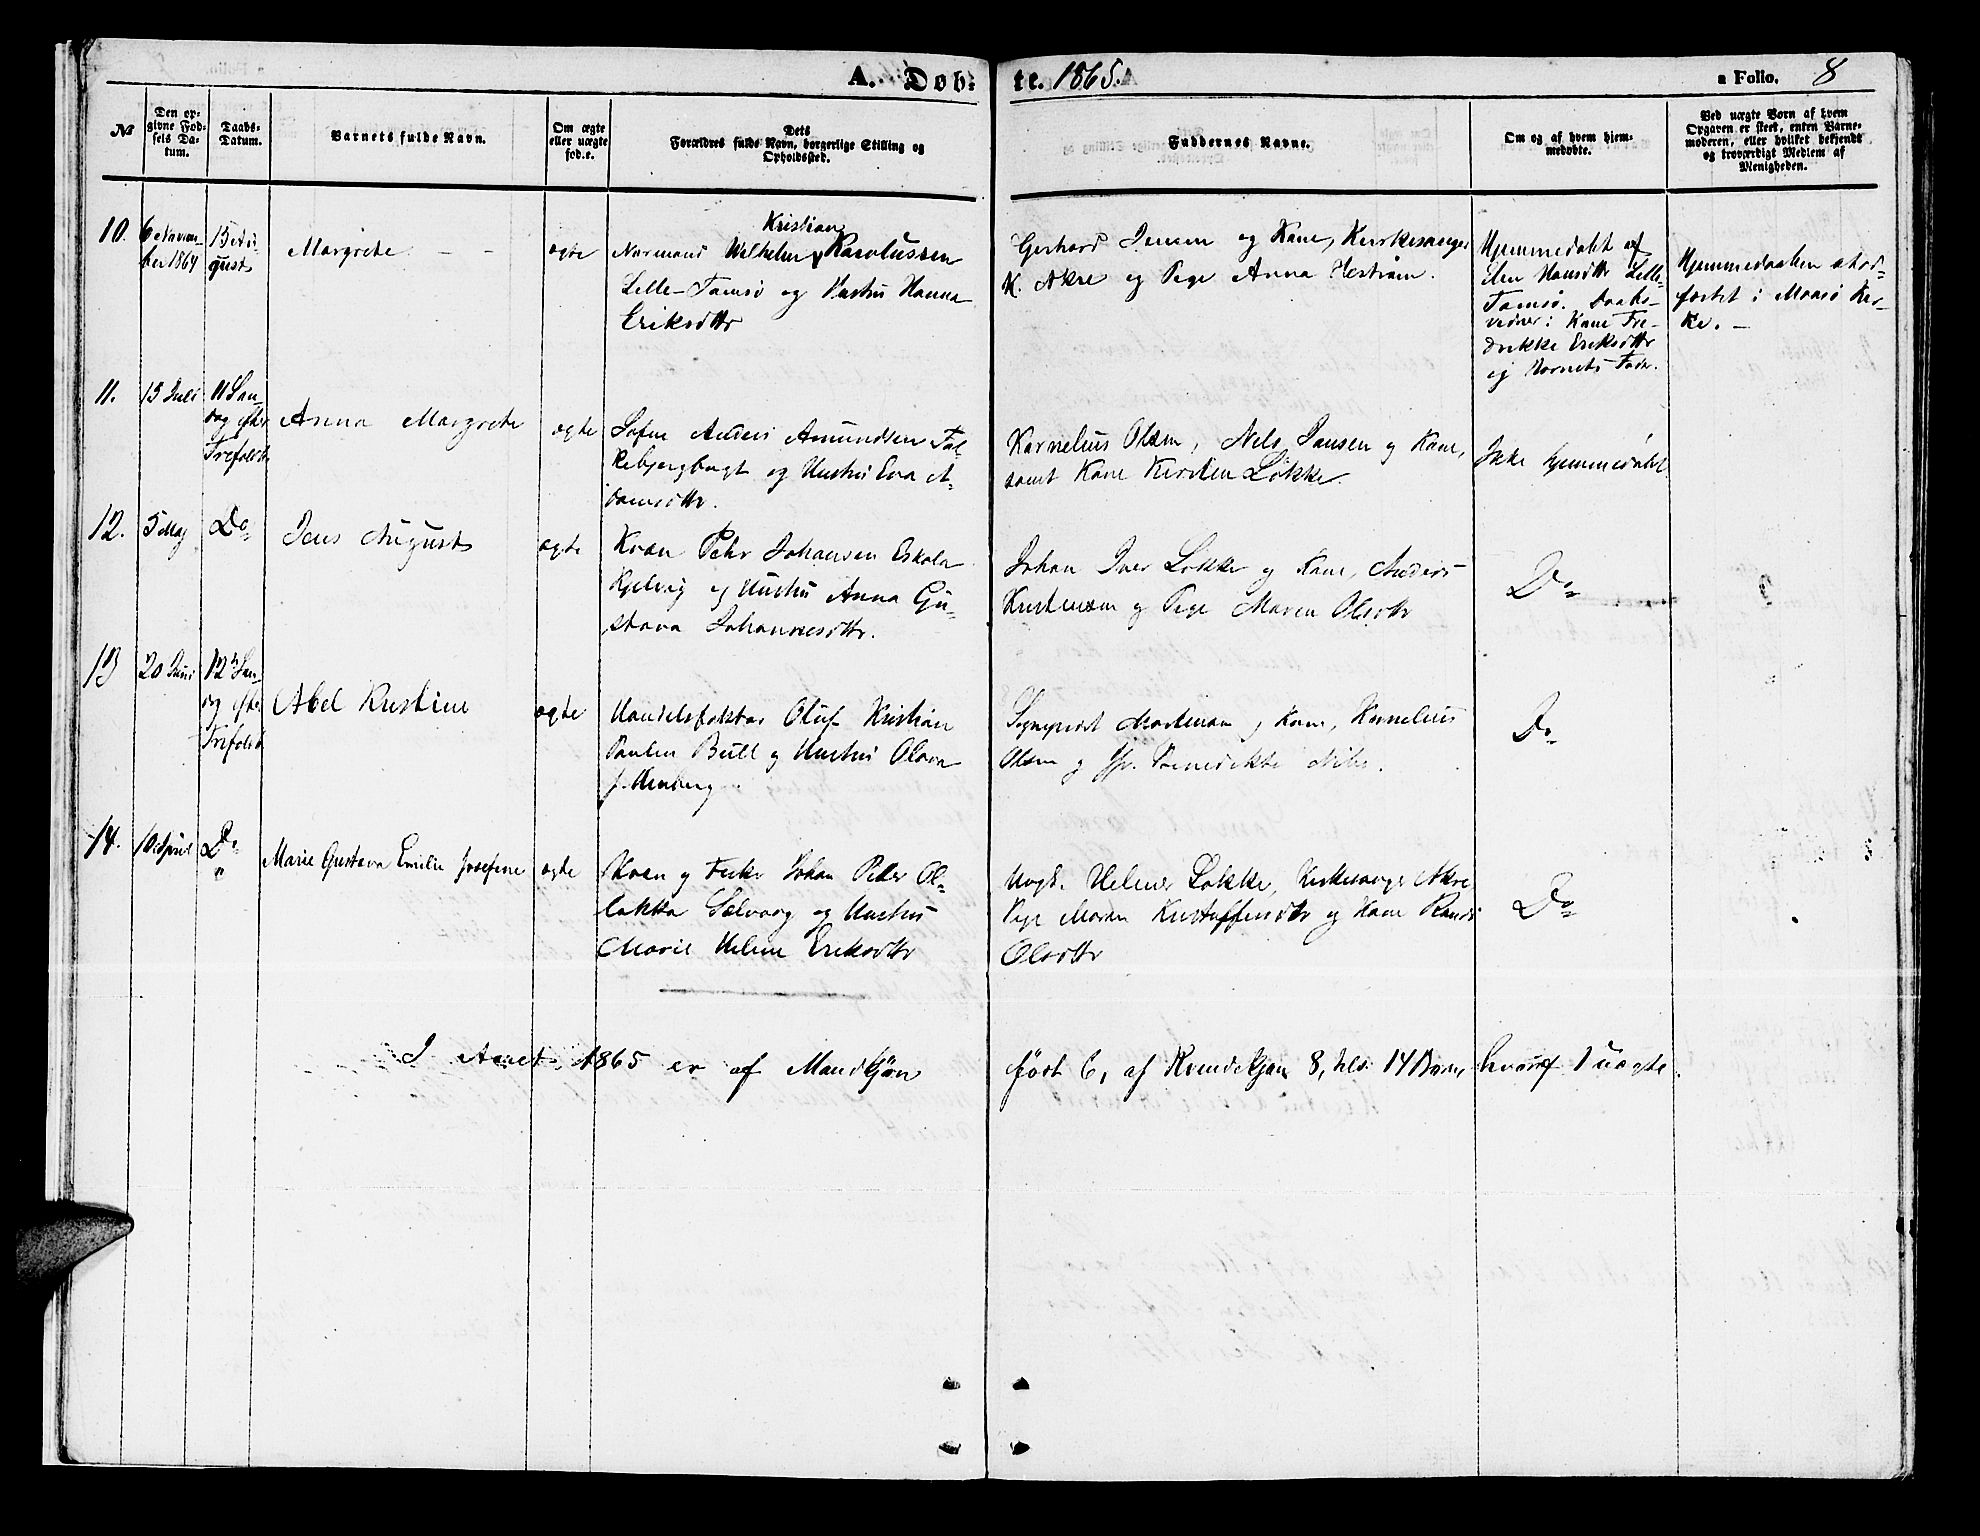 A. Døb-
te. 1865.
a Folio. 8
№
Den op-
givne Fød-
sels Da-
tum.
Daabs-
Datum.
Barnets fulde Navn.
Om ægte
eller uægte
fød.e.
Dets
Forældres fulde Navn, borgerlige Stilling og
Opholdssted.
Faddernes Navne.
Om og af hvem hjem-
medøbte.
Ved uægte Børn af hvem
Opgaven er skeet, enten Barne-
moderen, eller hvilket bekjendt
og troværdigt Medlem af
Menigheden.
10. 6 Novem-
ber 1864
15 Au-
gust
Margrete
ægte
Kristian
Normand Wilhelm Karolussen
Lille-Tamsø og Hustru Hanna
Eriksdttr
Gerhard Jensen og Kone, Kirkesanger
K. Akre og Pige Anna Hestnæs.
Hjemmedøbt af
Elen Hansdttr Lille
Tamsø. Daabs-
vidner: Kone Fre-
drikke Eriksdttr
og Barnets Fader.
Hjemmedaaben stad-
fæstet i Maasø Kir-
ke. –
11. 15 Juli
11 Søn-
dag efter
Trefoldt
Anna Margrete
ægte
Lofin Anders Amundsen
og Hustru Eva A-
damsdttr.
Kornelius Olsen, Nels Jansen og Kone,
samt Kone Kirsten Løkke
Ikke hjemmedøbt
12. 5 Maj
Do
Jens August
ægte
Kvæn Pehr Johansen Eskola
Kjelvig og Hustru Anna Gu-
stava Johannesdttr.
Johan Iver Løkke og Kone, Anders
Kristensen og Pige Maren Olsdttr
Do
13 20 Juni
12te Søn-
dag efter
Trefoldt
Abel Kristine
ægte
Handelsfaktor Oluf Kristian
Paulin Bull og Hustru Olava
f.
Sogneprest Mortensen og Kone, Kornelius
Olsen og Benedikte
Do
14. 10 April
Do
"
Marie Gustava Emilie Josefine
ægte
Kvæn og Fisker Johan Peter Ol-
lokka Sælvaag og Hustru
Marie Helene Eriksdttr
Ungk. Helmer Løkke, Kirkesanger Akre
Pige Maren Kristoffersdttr og Kone Randi
Olsdttr
Do
I Aaret 1865 er af Mandkjøn
født 6, af Kvindekjøn 8, tils. 14 Børn, hvoraf 1 uægte.